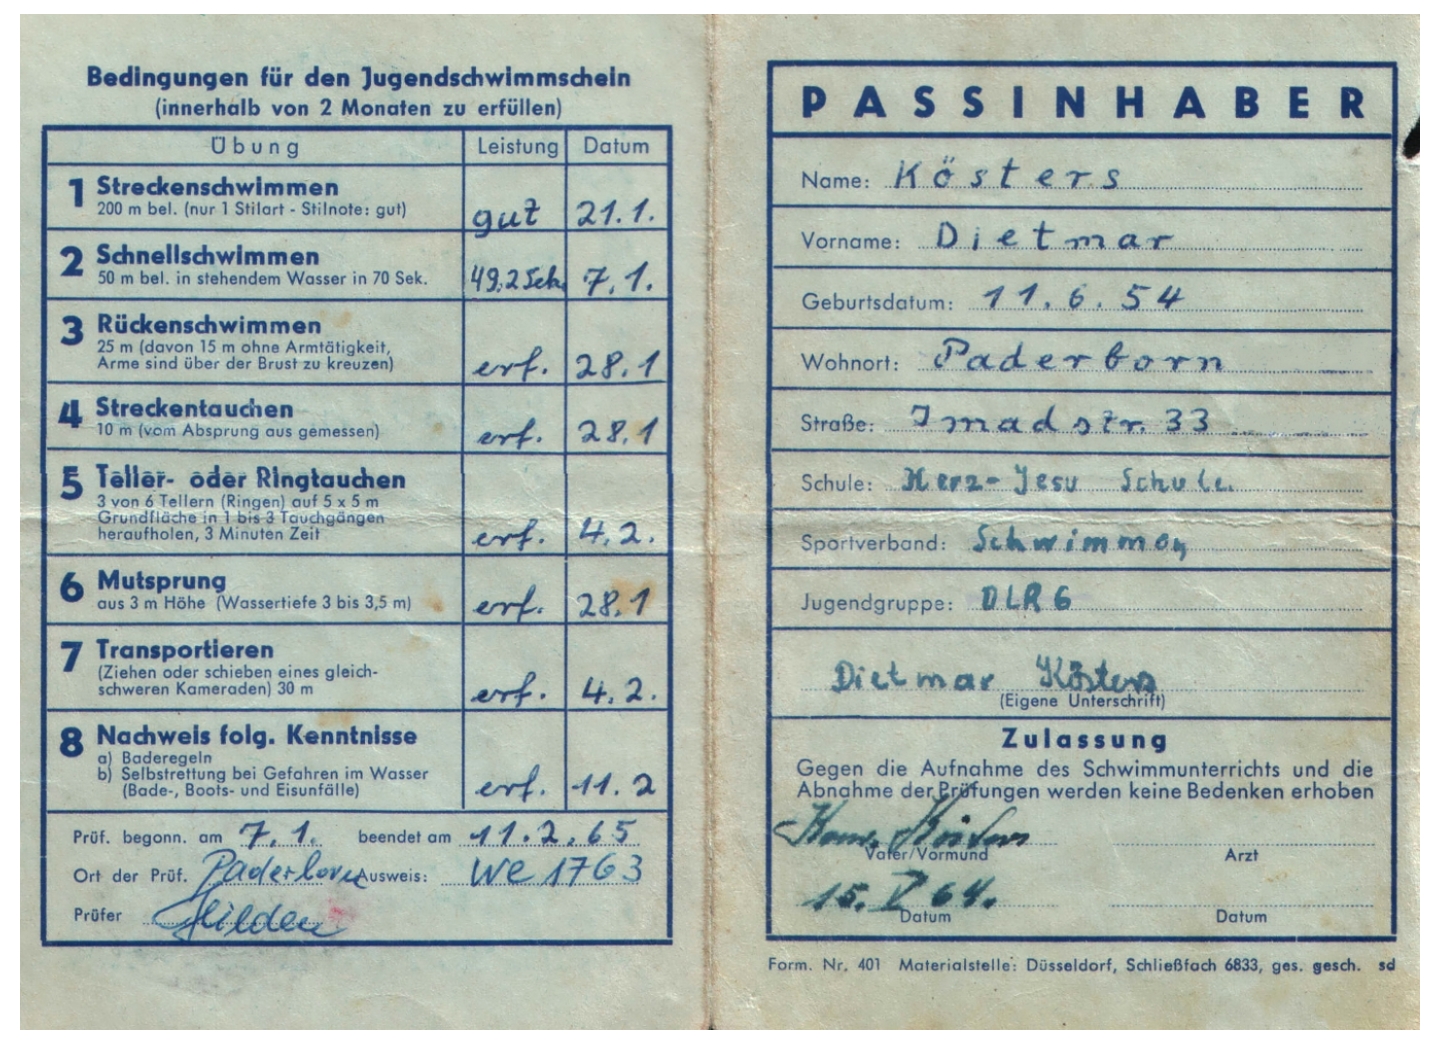 Bedingungen für den Jugendschwimmschein
(innerhalb von 2 Monaten zu erfüllen)
Übung Leistung Datum
1 Streckenschwimmen
200 m bel. (nur 1 Stilart - Stilnote: gut) gut 21.1.
2 Schnellschwimmen
50 m bel. in stehendem Wasser in 70 Sek. 49,2 Sek. 7.1.
3 Rückenschwimmen
25 m (davon 15 m ohne Armtätigkeit,
Arme sind über der Brust zu kreuzen) erf. 28.1
4 Streckentauchen
10 m (vom Absprung aus gemessen) erf. 28.1
5 Teller- oder Ringtauchen
3 von 6 Tellern (Ringen) auf 5 x 5 m
Grundfläche in 1 bis 3 Tauchgängen
heraufholen, 3 Minuten Zeit erf. 4.2.
6 Mutsprung
aus 3 m Höhe (Wassertiefe 3 bis 3,5 m) erf. 28.1
7 Transportieren
(Ziehen oder schieben eines gleich-
schweren Kameraden) 30 m erf. 4.2.
8 Nachweis folg. Kenntnisse
a) Baderegeln
b) Selbstrettung bei Gefahren im Wasser
(Bade-, Boots- und Eisunfälle) erf. 11.2
Prüf. begonn. am 7.1. beendet am 11.2.65
Ort der Prüf. Paderborn Ausweis: We 1763
Prüfer
PASSINHABER
Name: Kösters
Vorname: Dietmar
Geburtsdatum: 11.6.54
Wohnort: Paderborn
Straße: Imadstr. 33
Schule: Herz-Jesu Schule
Sportverband: Schwimmen
Jugendgruppe: DLRG
Dietmar Kösters
(Eigene Unterschrift)
Zulassung
Gegen die Aufnahme des Schwimmunterrichts und die
Abnahme der Prüfungen werden keine Bedenken erhoben
Kösters
Vater/Vormund Arzt
15. V 64.
Datum Datum
Form. Nr. 401 Materialstelle: Düsseldorf, Schließfach 6833, ges. gesch. sd